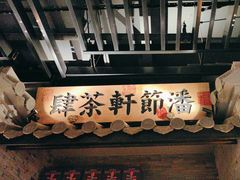 潘節軒茶肆